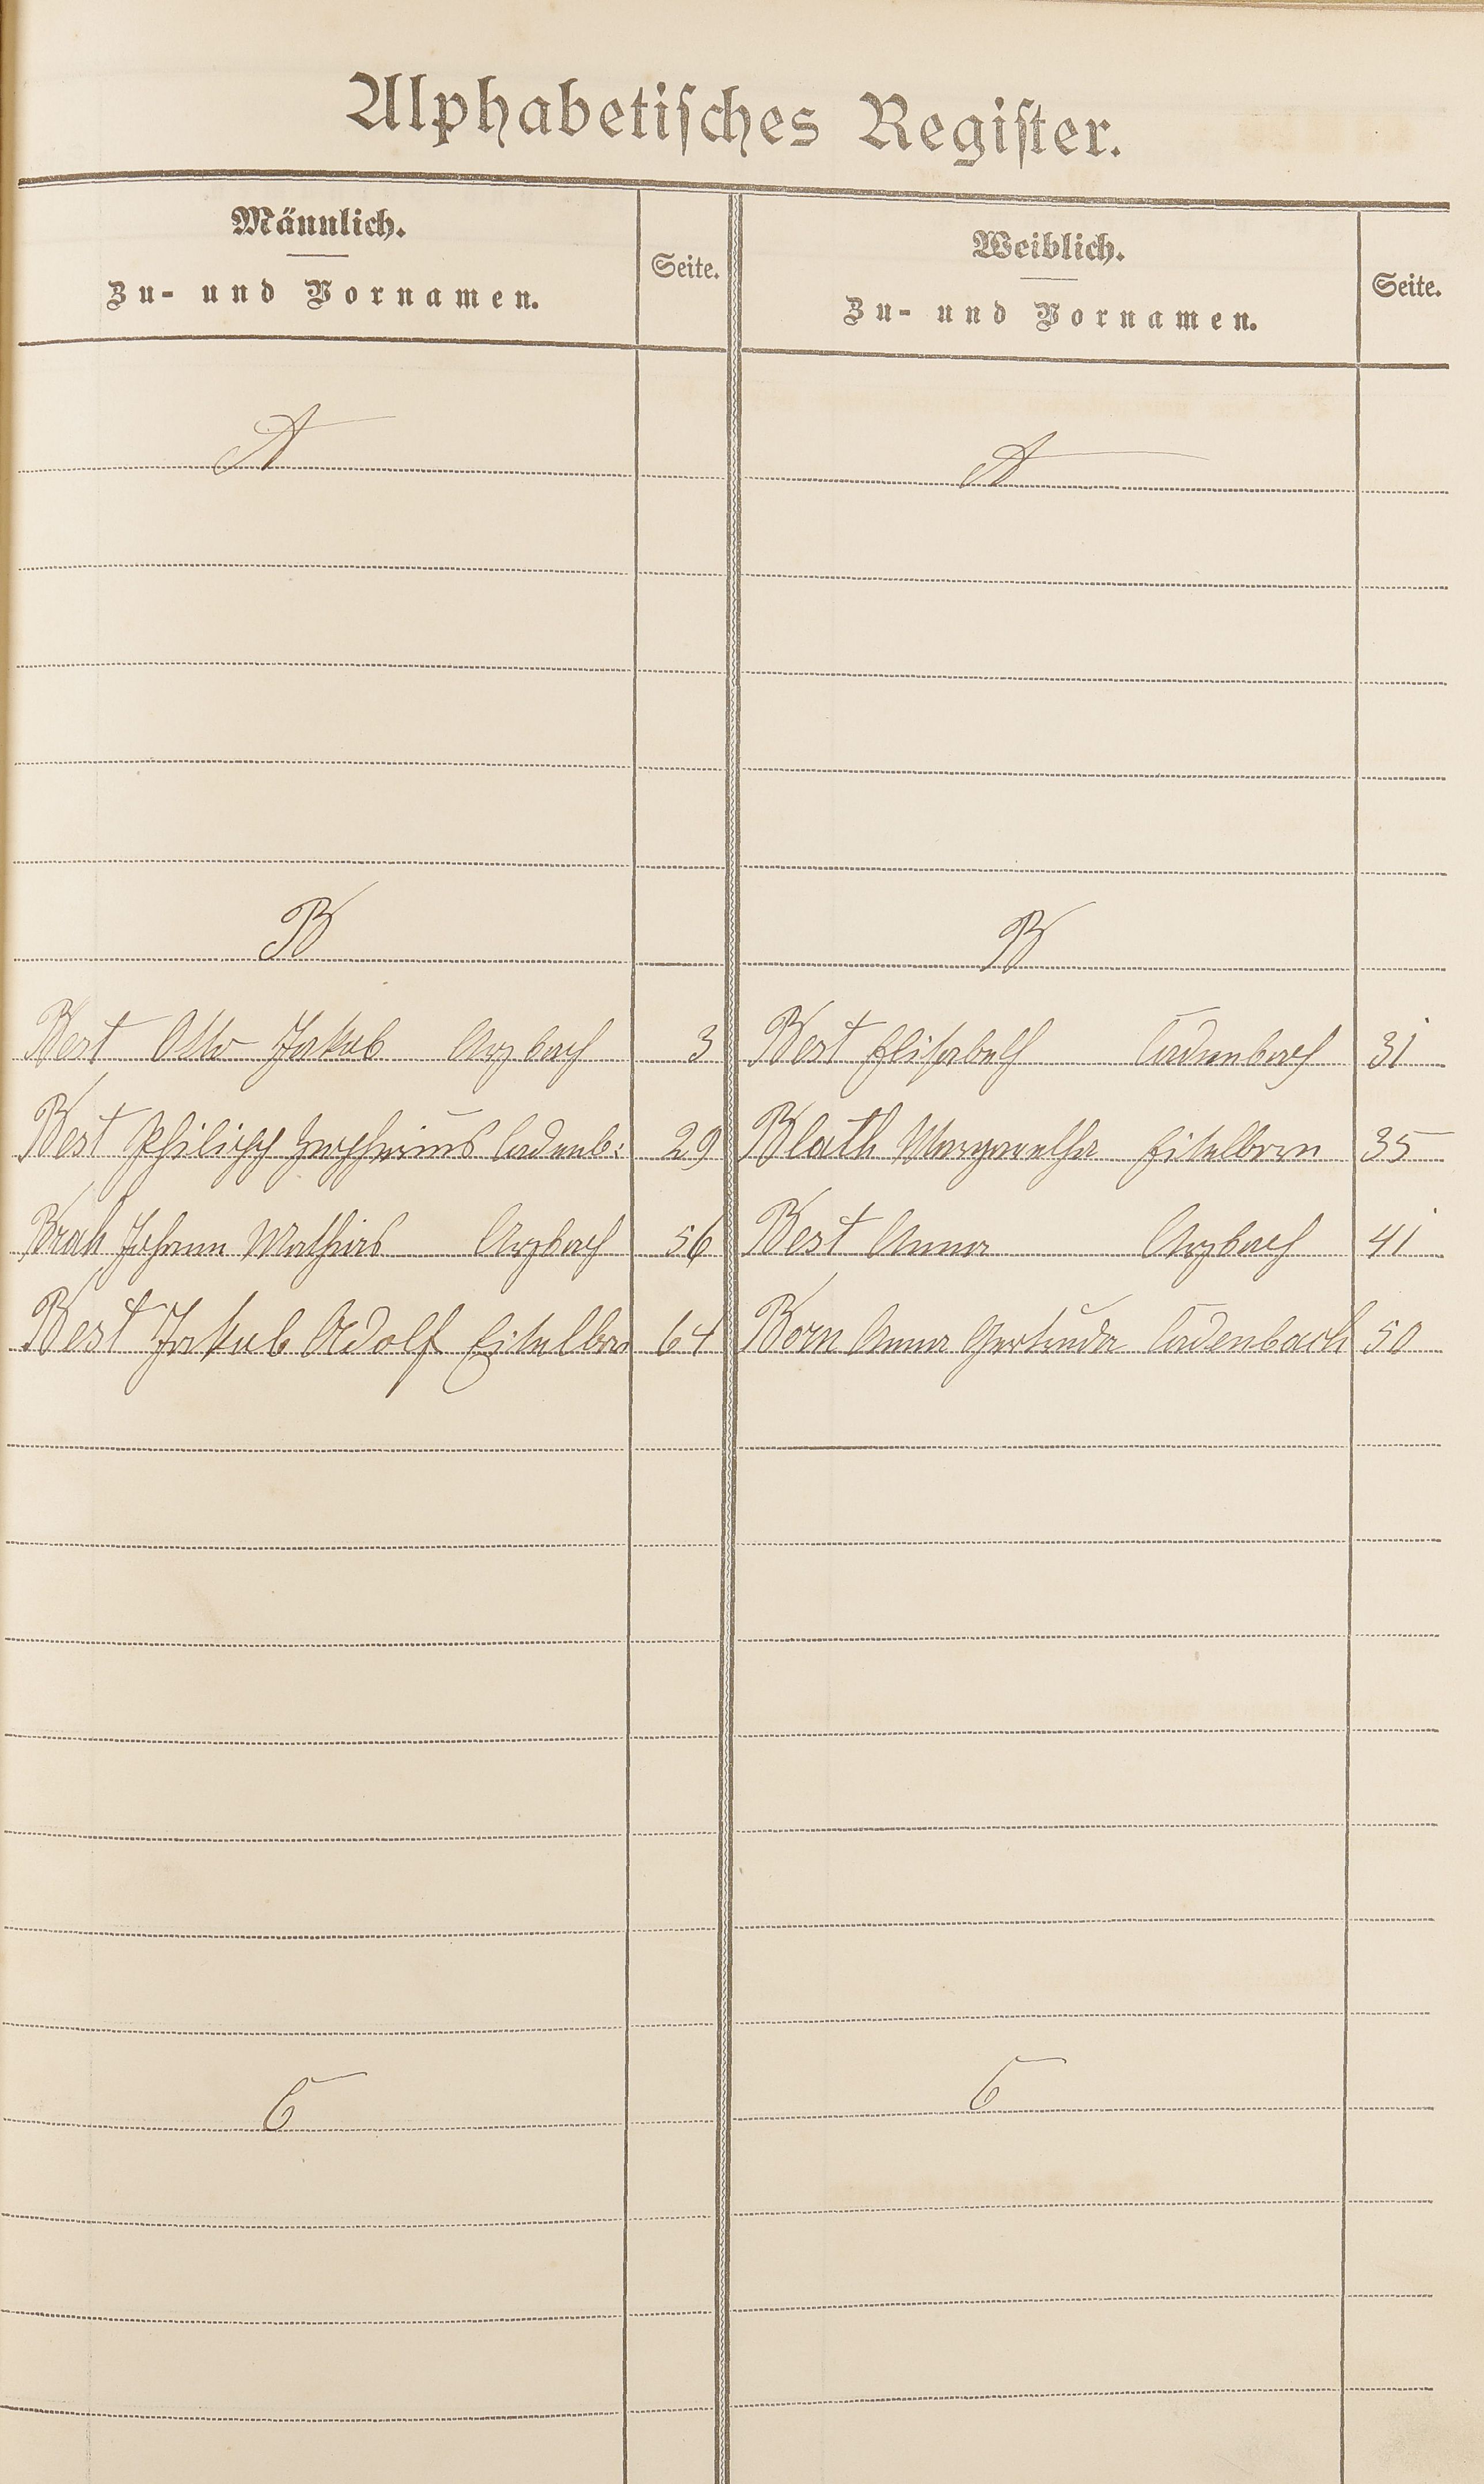 Alphabetisches Register.
Männlich.
Zu- und Vornamen.
Seite.
Weiblich.
Zu- und Vornamen.
Seite.
A
A
B
B
Best Otto Jakob Arzbach 3
Best Elisabeth Cadenbach 31
Best Philipp Cadenb: 29
Blath Margaretha Eitelborn 35
Brah Johann Mathias Arzbach 56
Best Anna Arzbach 41
Best Jakob Adolf Eitelborn 64
Born Anna Gertruda Cadenbach 50
C
C